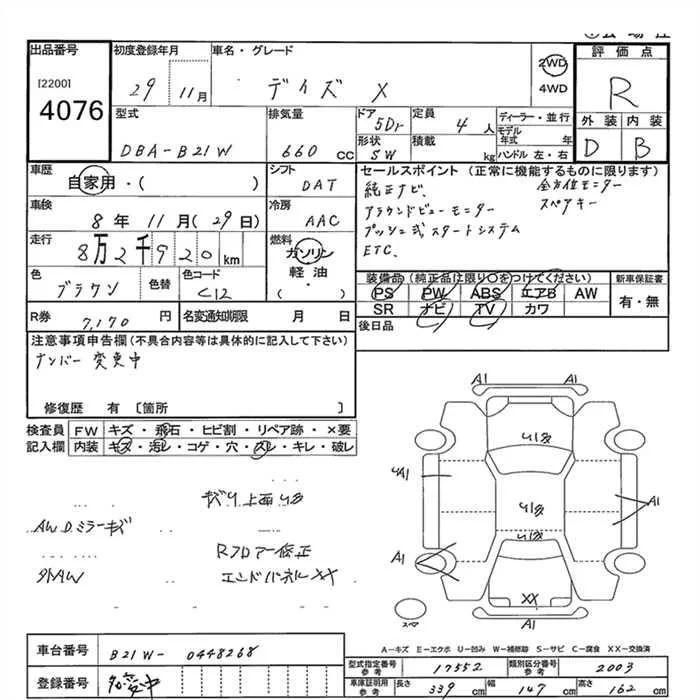 出品番号
[2200]
4076
初度登録年月
29 11月
車名・グレード
デイズ X
2WD
4WD
評価点
R
外装 内装
D B
型式
DBA-B21W
排気量
660 CC
ドア
5Dr
形状
SW
定員
4 人
積載
kg
ディーラー・並行
モデル年式 年
ハンドル 左・右
車歴
自家用・( )
シフト
DAT
車検
8年 11月(29日)
冷房
AAC
走行
8万2千920km
燃料
ガソリン
軽油・
( )
色
ブラウン
色替
色コード
C12
R券
7,170 円
名変通知期限 月 日
セールスポイント (正常に機能するものに限ります)
純正ナビ、 全方位モニター
アラウンドビューモニター スペアキー
プッシュ式スタートシステム
ETC、
装備品(純正品に限り○をつけてください)
PS PW ABS エアB AW
SR ナビ TV カワ
新車保証書
有・無
後日品
注意事項申告欄(不具合内容等は具体的に記入して下さい)
ナンバー変更中
修復歴 有〔箇所 〕
検査員記入欄
FW キズ・飛石・ヒビ割・リペア跡・×要
内装 キズ・汚レ・コゲ・穴・スレ・キレ・破レ
AW.D.ミラーキズ
Rフロアー修正
エンドパネルXX
外AW
A1 A1
A1
A1
A1
XX
A1
スペア
A-キズ E-エクボ U-凹み W-補修跡 S-サビ C-腐食 XX-交換済
車台番号
B21W-0448268
登録番号
名変中
型式指定番号参考
17552
類別区分番号参考
2003
車庫証明用参考
長さ 339cm 幅 147cm 高さ 162cm